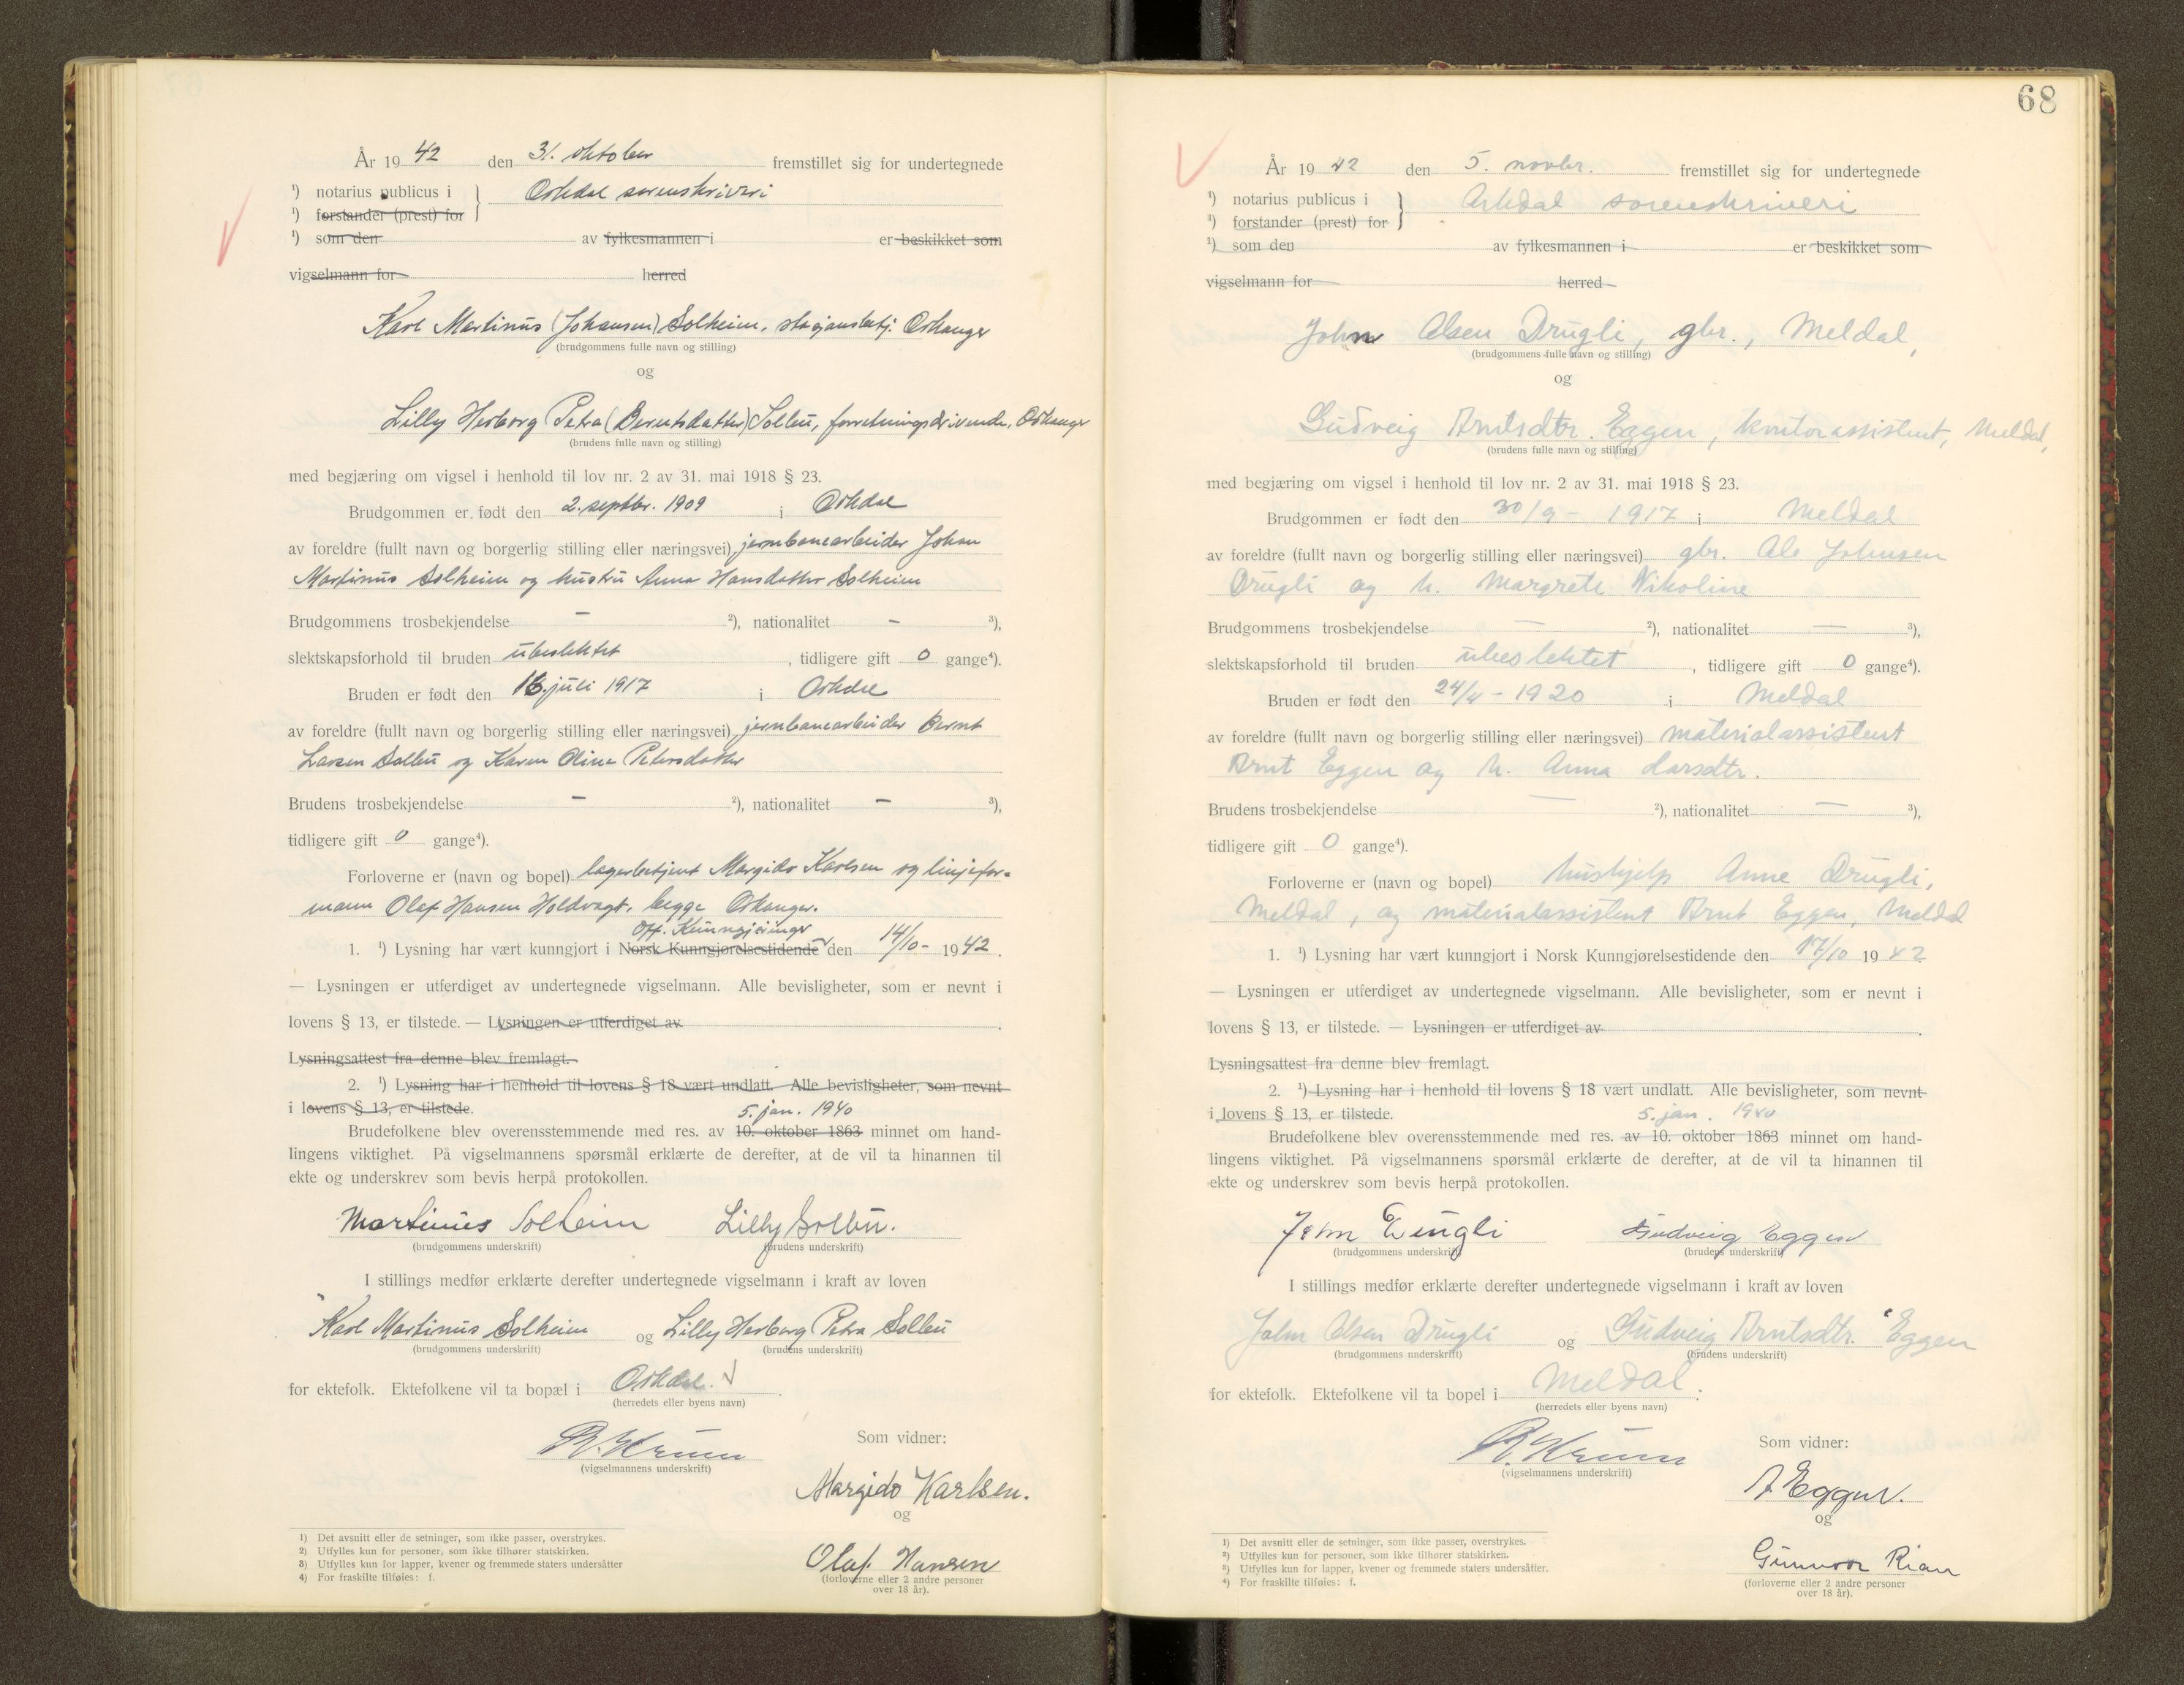 År 19 42 den 31. oktober fremstillet sig for undertegnede
¹) notarius publicus i } Orkdal sorenskriveri
¹) forstander (prest) for
¹) som den av fylkesmannen i er beskikket som
vigselmann for herred
Karl Martinus (Johansen) Solheim, stasjonsbetj. Orkanger
(brudgommens fulle navn og stilling)
og
Lilly Herborg Petra (Berntsdatter) Solbu, forretningsdrivende, Orkanger
(brudens fulle navn og stilling)
med begjæring om vigsel i henhold til lov nr. 2 av 31. mai 1918 § 23.
Brudgommen er født den 2. septbr. 1909 i Orkdal
av foreldre (fullt navn og borgerlig stilling eller næringsvei) jernbanearbeider Johan
Martinus Solheim og hustru Anna Hansdatter Solheim
Brudgommens trosbekjendelse — ²), nationalitet — ³),
slektskapsforhold til bruden ubeslektet, tidligere gift 0 gange⁴).
Bruden er født den 16. juli 1917 i Orkdal
av foreldre (fullt navn og borgerlig stilling eller næringsvei) jernbanearbeider Bernt
Larsen Solbu og Karen Oline Petersdatter
Brudens trosbekjendelse — ²), nationalitet — ³),
tidligere gift 0 gange⁴).
Forloverne er (navn og bopel) lagerbetjent Margido Karlsen og linjefor-
mann Olaf Hansen Holdvagt, begge Orkanger.
Off. Kunngjøringer
1. ¹) Lysning har vært kunngjort i Norsk Kunngjørelsestidende den 14/10- 1942.
— Lysningen er utferdiget av undertegnede vigselmann. Alle bevisligheter, som er nevnt i
lovens § 13, er tilstede. — Lysningen er utferdiget av
Lysningsattest fra denne blev fremlagt.
2. ¹) Lysning har i henhold til lovens § 18 vært undlatt. Alle bevisligheter, som nevnt
i lovens § 13, er tilstede.
5. jan. 1940
Brudefolkene blev overensstemmende med res. av 10. oktober 1863 minnet om hand-
lingens viktighet. På vigselmannens spørsmål erklærte de derefter, at de vil ta hinannen til
ekte og underskrev som bevis herpå protokollen.
Martinus Solheim Lilly Solbu.
(brudgommens underskrift) (brudens underskrift)
I stillings medfør erklærte derefter undertegnede vigselmann i kraft av loven
Karl Martinus Solheim og Lilly Herborg Petra Solbu
(brudgommens underskrift) (brudens underskrift)
for ektefolk. Ektefolkene vil ta bopæl i Orkdal.
(herredets eller byens navn)
(vigselmannens underskrift)
Som vidner:
Margido Karlsen.
og
Olaf Hansen
(forloverne eller 2 andre personer
over 18 år).
1) Det avsnitt eller de setninger, som ikke passer, overstrykes.
2) Utfylles kun for personer, som ikke tilhører statskirken.
3) Utfylles kun for lapper, kvener og fremmede staters undersåtter
4) For fraskilte tilføies: f.
68
År 19 42 den 5. novbr. fremstillet sig for undertegnede
¹) notarius publicus i } Orkdal sorenskriveri
¹) forstander (prest) for
¹) som den av fylkesmannen i er beskikket som
vigselmann for herred
John Olsen Drugli, gbr., Meldal,
(brudgommens fulle navn og stilling)
og
Gudveig Arntsdtr. Eggen, kontorassistent, Meldal,
(brudens fulle navn og stilling)
med begjæring om vigsel i henhold til lov nr. 2 av 31. mai 1918 § 23.
Brudgommen er født den 30/9 - 1917 i Meldal
av foreldre (fullt navn og borgerlig stilling eller næringsvei) gbr. Ole Johnsen
Drugli og h. Margrete Nikoline
Brudgommens trosbekjendelse — ²), nationalitet — ³),
slektskapsforhold til bruden ubeslektet, tidligere gift 0 gange⁴).
Bruden er født den 24/4 - 1920 i Meldal
av foreldre (fullt navn og borgerlig stilling eller næringsvei) materialassistent
Arnt Eggen og h. Anna Larsdtr.
Brudens trosbekjendelse — ²), nationalitet — ³),
tidligere gift 0 gange⁴).
Forloverne er (navn og bopel) hushjelp Anne Drugli,
Meldal, og materialassistent Arnt Eggen, Meldal
1. ¹) Lysning har vært kunngjort i Norsk Kunngjørelsestidende den 17/10 1942
— Lysningen er utferdiget av undertegnede vigselmann. Alle bevisligheter, som er nevnt i
lovens § 13, er tilstede. — Lysningen er utferdiget av
Lysningsattest fra denne blev fremlagt.
2. ¹) Lysning har i henhold til lovens § 18 vært undlatt. Alle bevisligheter, som nevnt
i lovens § 13, er tilstede.
5. jan. 1940
Brudefolkene blev overensstemmende med res. av 10. oktober 1863 minnet om hand-
lingens viktighet. På vigselmannens spørsmål erklærte de derefter, at de vil ta hinannen til
ekte og underskrev som bevis herpå protokollen.
John Drugli Gudveig Eggen
(brudgommens underskrift) (brudens underskrift)
I stillings medfør erklærte derefter undertegnede vigselmann i kraft av loven
John Olsen Drugli og Gudveig Arntsdtr. Eggen
(brudgommens underskrift) (brudens underskrift)
for ektefolk. Ektefolkene vil ta bopel i Meldal.
(herredets eller byens navn)
(vigselmannens underskrift)
Som vidner:
A Eggen.
og
Gunvor Rian
(forloverne eller 2 andre personer
over 18 år).
1) Det avsnitt eller de setninger, som ikke passer, overstrykes.
2) Utfylles kun for personer, som ikke tilhører statskirken.
3) Utfylles kun for lapper, kvener og fremmede staters undersåtter.
4) For fraskilte tilføies: f.